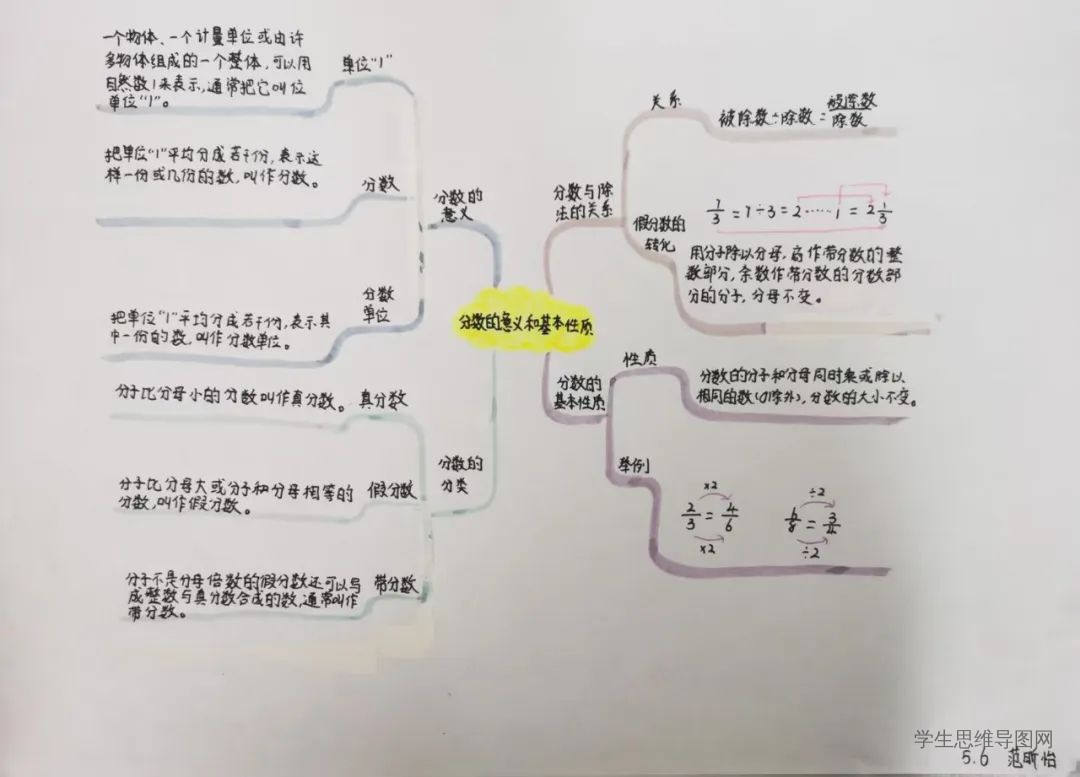 分数的意义和基本性质
分数的
意义
单位"1"
一个物体、一个计量单位或由许
多物体组成的一个整体,可以用
自然数1来表示,通常把它叫位
单位"1"。
分数
把单位"1"平均分成若干份,表示这
样一份或几份的数,叫作分数。
分数
单位
把单位"1"平均分成若干份,表示其
中一份的数,叫作分数单位。
分数的
分类
真分数
分子比分母小的分数叫作真分数。
假分数
分子比分母大或分子和分母相等的
分数,叫作假分数。
带分数
分子不是分母倍数的假分数还可以写
成整数与真分数合成的数,通常叫作
带分数。
分数与除
法的关系
关系
被除数÷除数=被除数/除数
假分数的
转化
7/3=7÷3=2……1=2 1/3
用分子除以分母,商作带分数的整
数部分,余数作带分数的分数部
分的分子,分母不变。
分数的
基本性质
性质
分数的分子和分母同时乘或除以
相同的数(0除外),分数的大小不变。
举例
×2
2/3=4/6
×2
÷2
6/8=3/4
÷2
学生思维导图网
5.6 范昕怡